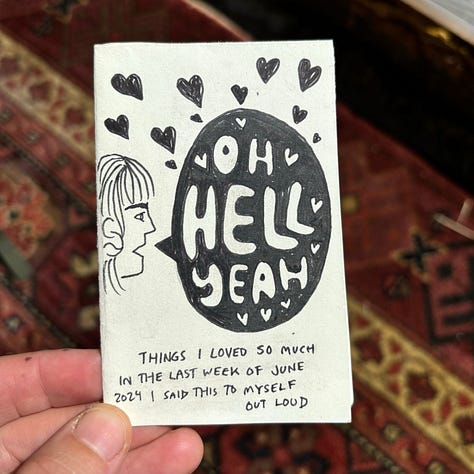 OH
HELL
YEAH
THINGS I LOVED SO MUCH
IN THE LAST WEEK OF JUNE
2024 I SAID THIS TO MYSELF
OUT LOUD